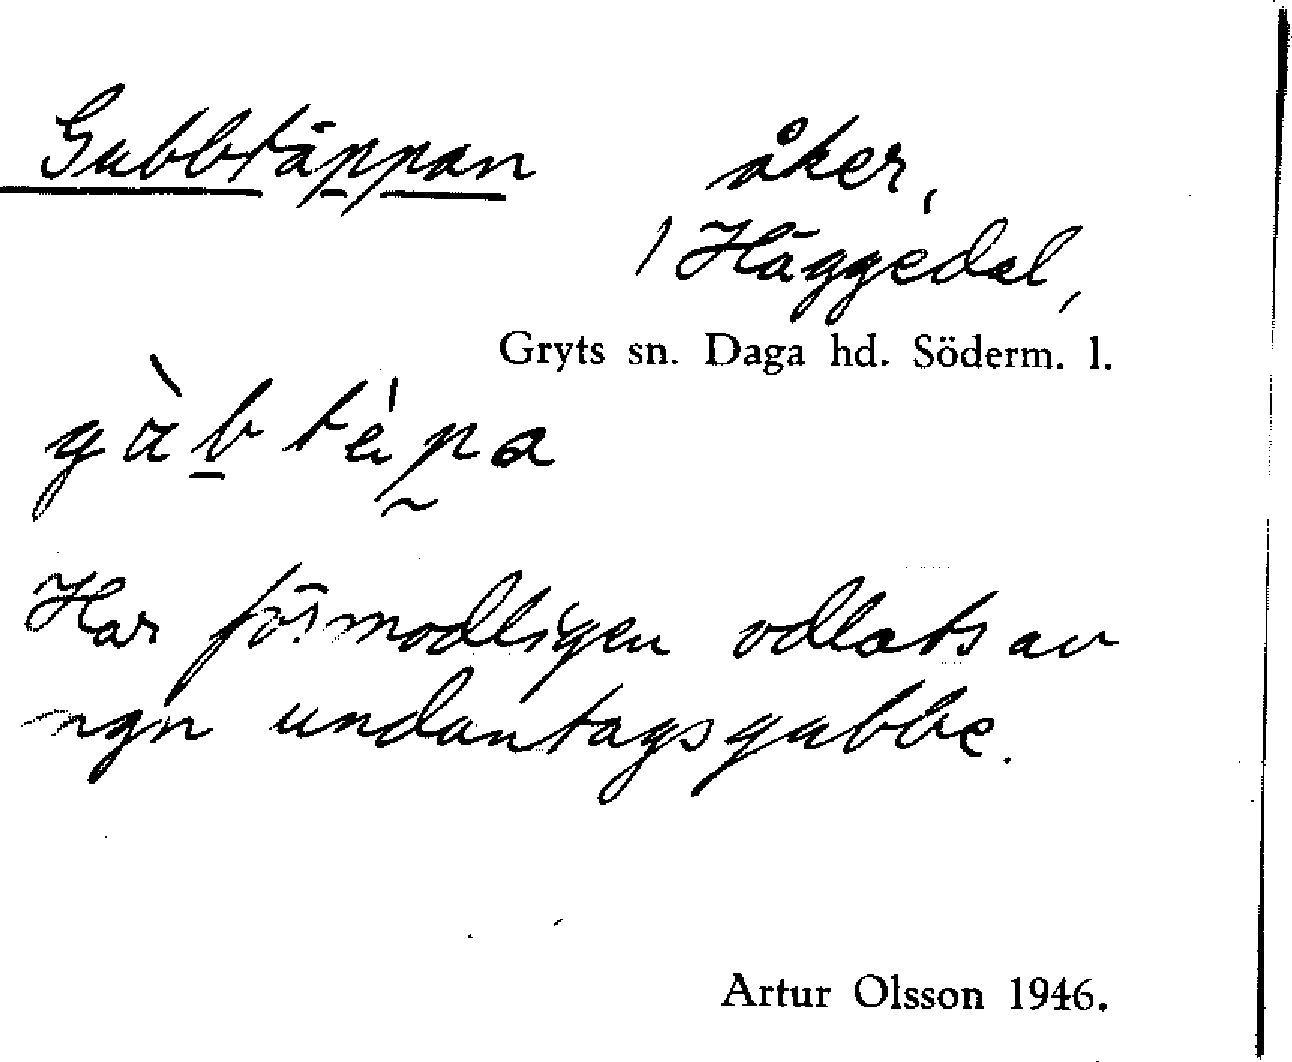 Gubbtäppan åker,
/ Häggedal,
Gryts sn. Daga hd. Söderm. l.
Har förmodligen odlats av
ngn undantagsgubbe.
Artur Olsson 1946.